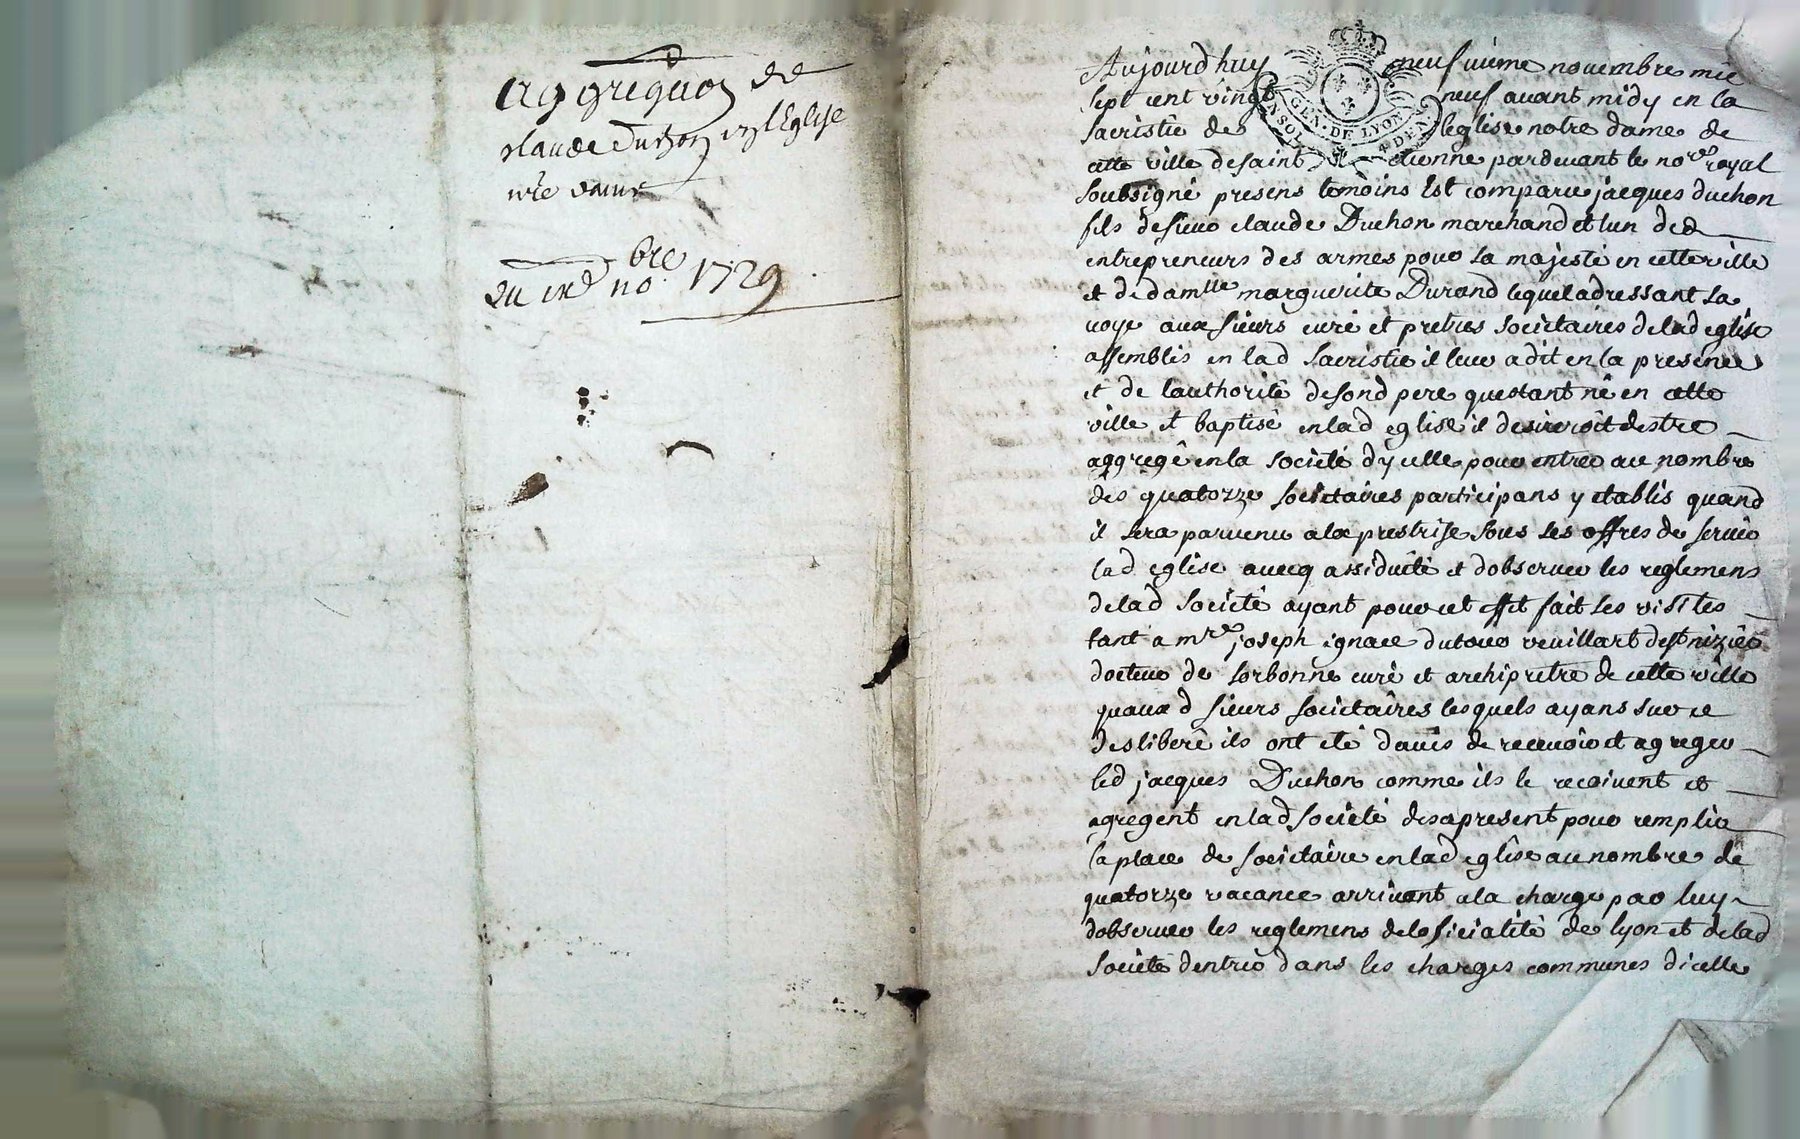 aggregaon de
claude Duchon en lEglise
nre dame
du ix.e nobre 1729
Aujourdhuy neufvieme novembre mil
sept cent vingt neuf avant midy en la
sacristie de leglise notre dame de
cette ville de saint etienne pardevant le nore royal
soubsigné presens temoins est comparu jacques duchon
fils de sieur claude Duchon marchand et lun des
entrepreneurs des armes pour sa majesté en cette ville
et de damlle marguerite Durand lequel adressant sa
voye aux sieurs curé et pretres societaires de lad eglise
assemblés en lad sacristie il leur a dit en la presence
et de lauthorité de sond pere questant né en cette
ville et baptisé en lad eglise il desireroit destre
aggregé en la societé dycelle pour entrer au nombre
des quatorze societaires participans y etablis quand
il sera parvenu a la prestrise sous ses offres de servir
lad eglise avecq assiduité et dobserver les reglemens
de lad societé ayant pour cet effet fait ses visites
tant a mre joseph ignace dutour veuillart de st nizier
docteur de sorbonne curé et archipretre de cette ville
quaux d sieurs societaires lesquels ayans sur ce
desliberé ils ont eté davis de recevoir et agreger
led jacques Duchon comme ils le recoivent et
agregent en lad societé des apresent pour remplir
la place de societaire en lad eglise au nombre de
quatorze vacance arrivant a la charge par luy
dobserver les reglemens de loficialité de lyon et de lad
societé dentrer dans les charges communes dicelle
GEN. DE LYON